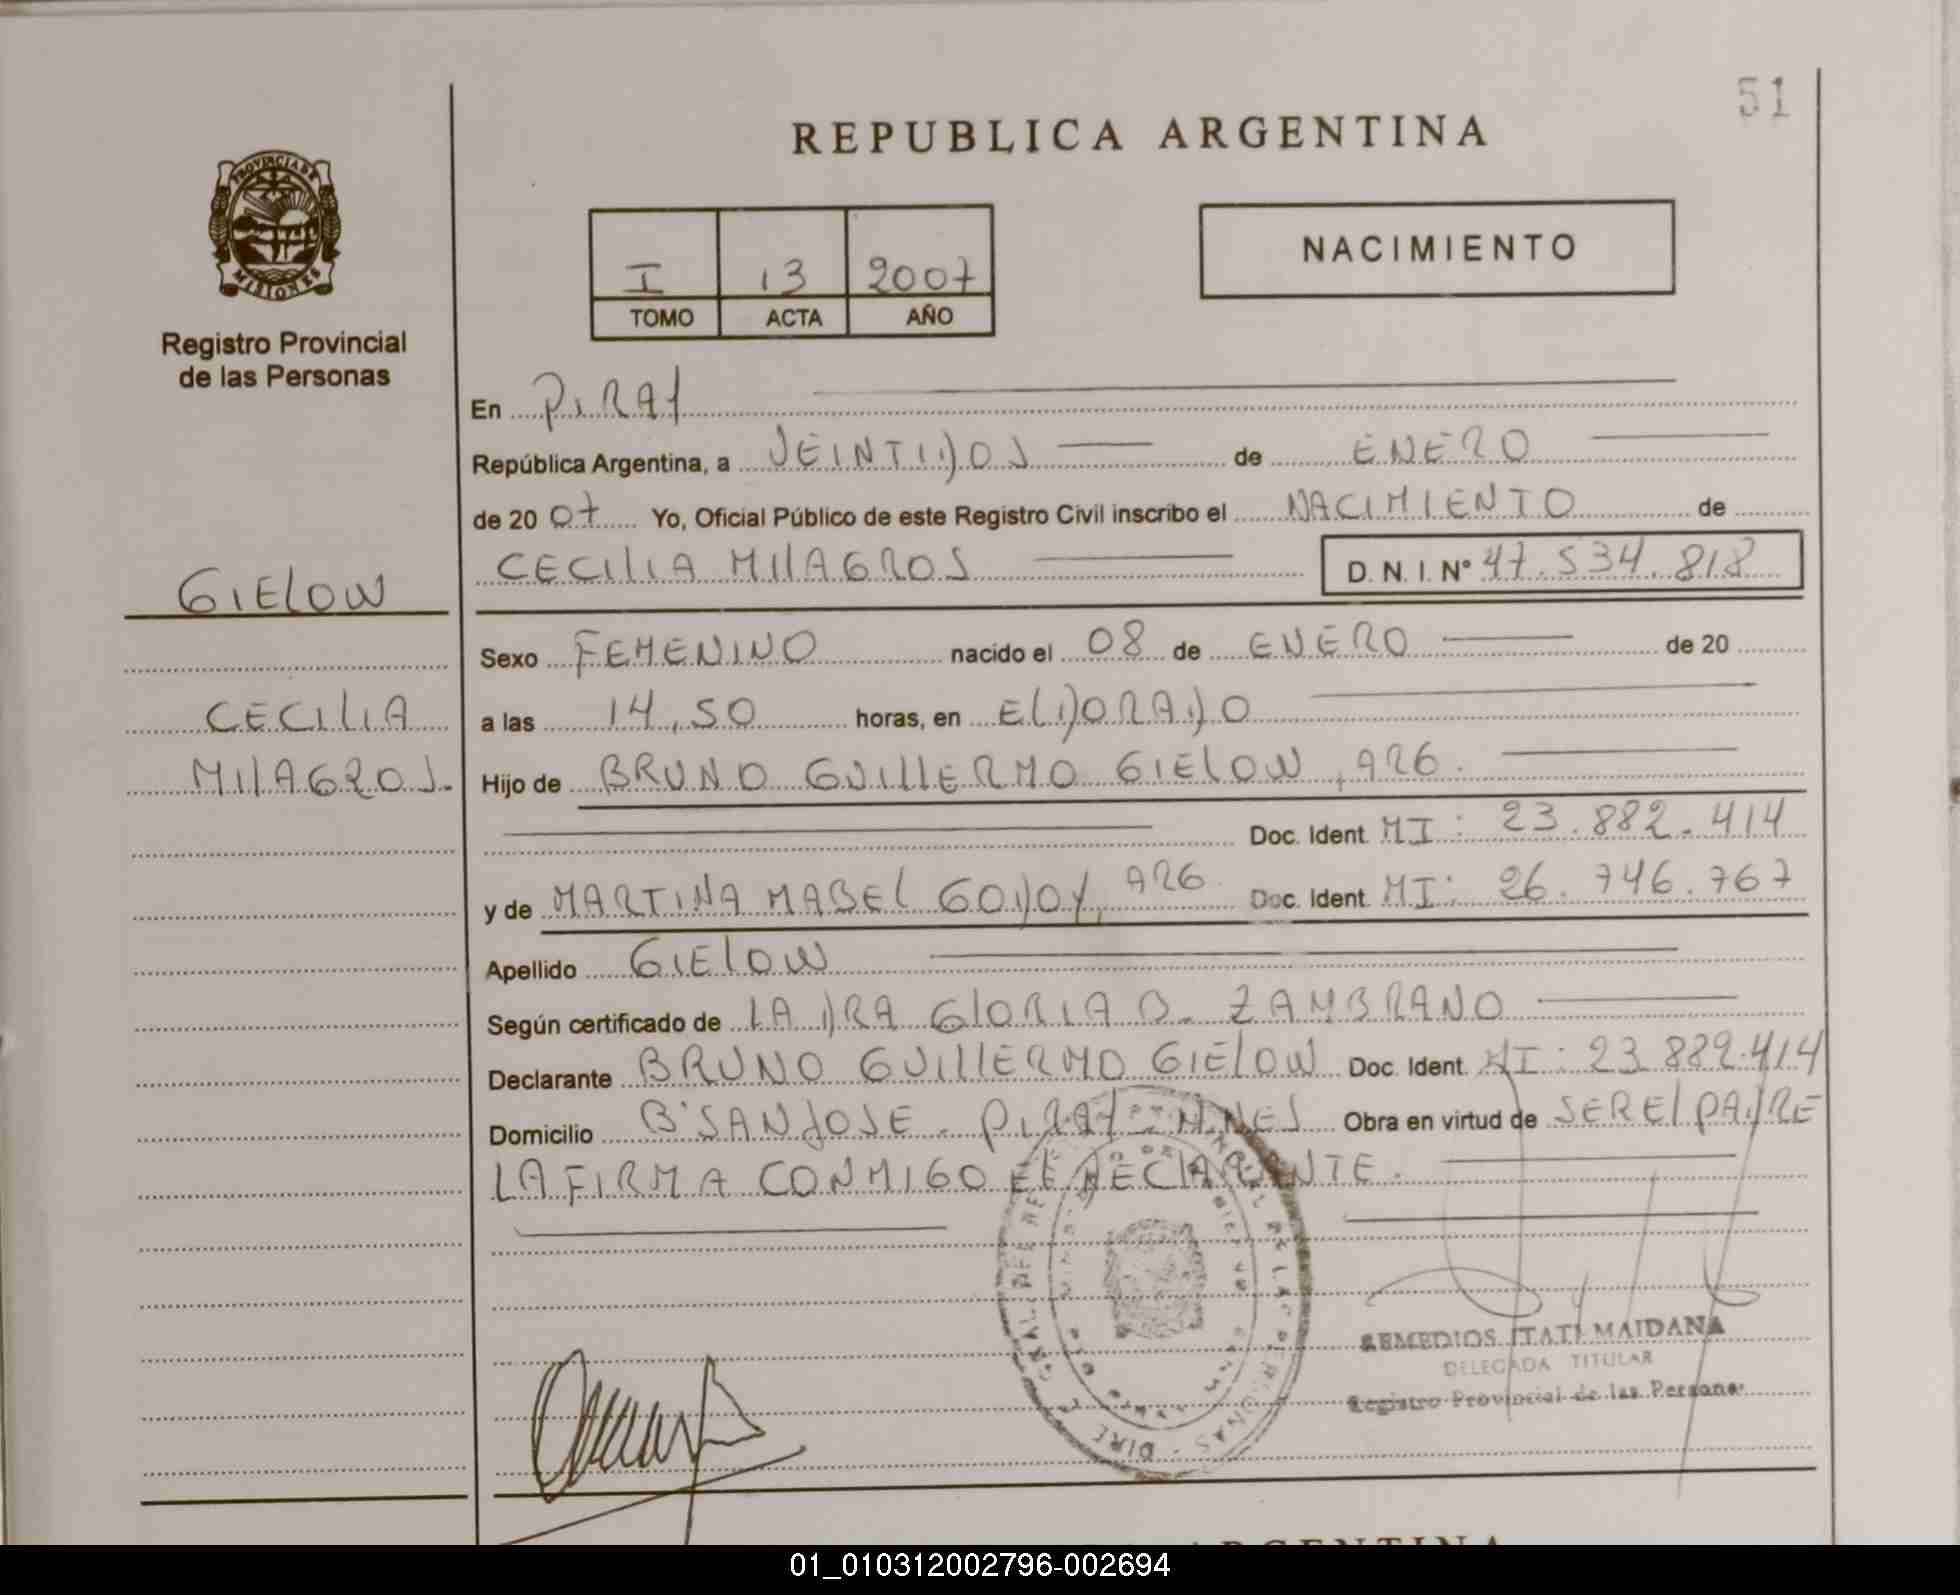 51
REPUBLICA ARGENTINA
PROVINCIA DE
MISIONES
Registro Provincial
de las Personas
I 13 2007
TOMO ACTA AÑO
NACIMIENTO
En PIRAY
República Argentina, a VEINTIDOS de ENERO
de 20 07 Yo, Oficial Público de este Registro Civil inscribo el NACIMIENTO de
CECILIA MILAGROS D. N. I. Nº 47.534.818
GIELOW
CECILIA
MILAGROS.
Sexo FEMENINO nacido el 08 de ENERO de 20
a las 14,50 horas, en ELDORADO
Hijo de BRUNO GUILLERMO GIELOW, ARG.
Doc. Ident. MI: 23.882.414
y de MARTINA MABEL GODOY, ARG. Doc. Ident. MI: 26.746.767
Apellido GIELOW
Según certificado de LA DRA GLORIA B. ZAMBRANO
Declarante BRUNO GUILLERMO GIELOW Doc. Ident. MI: 23.882.414
Domicilio B° SAN JOSE - PIRAY - MNES Obra en virtud de SER EL PADRE
LA FIRMA CONMIGO EL DECLARANTE.
REMEDIOS ITATI MAIDANA
DELEGADA TITULAR
Registro Provincial de las Personas
ARGENTINA
01_010312002796-002694